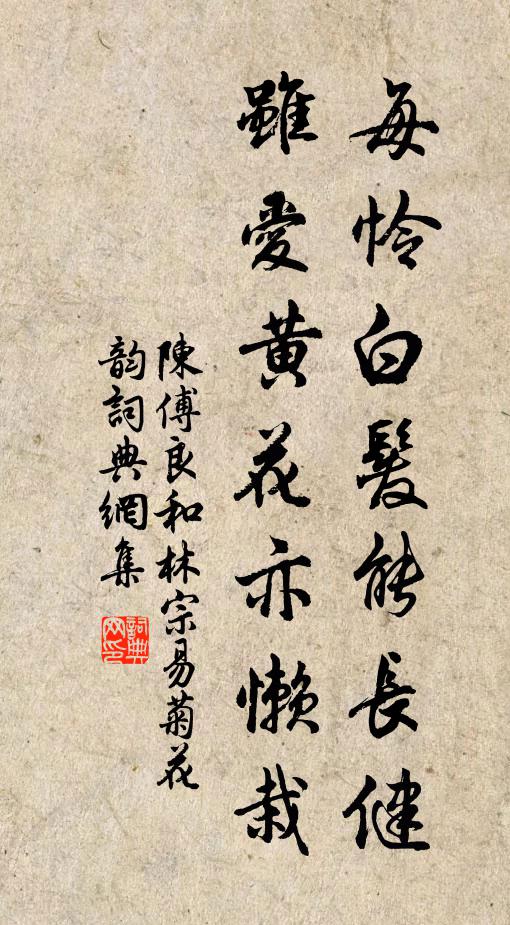 每怜白髮能長健
雖愛黃花亦懶栽
陳傅良和林宗易菊花
韵詞典網集
詞典网印